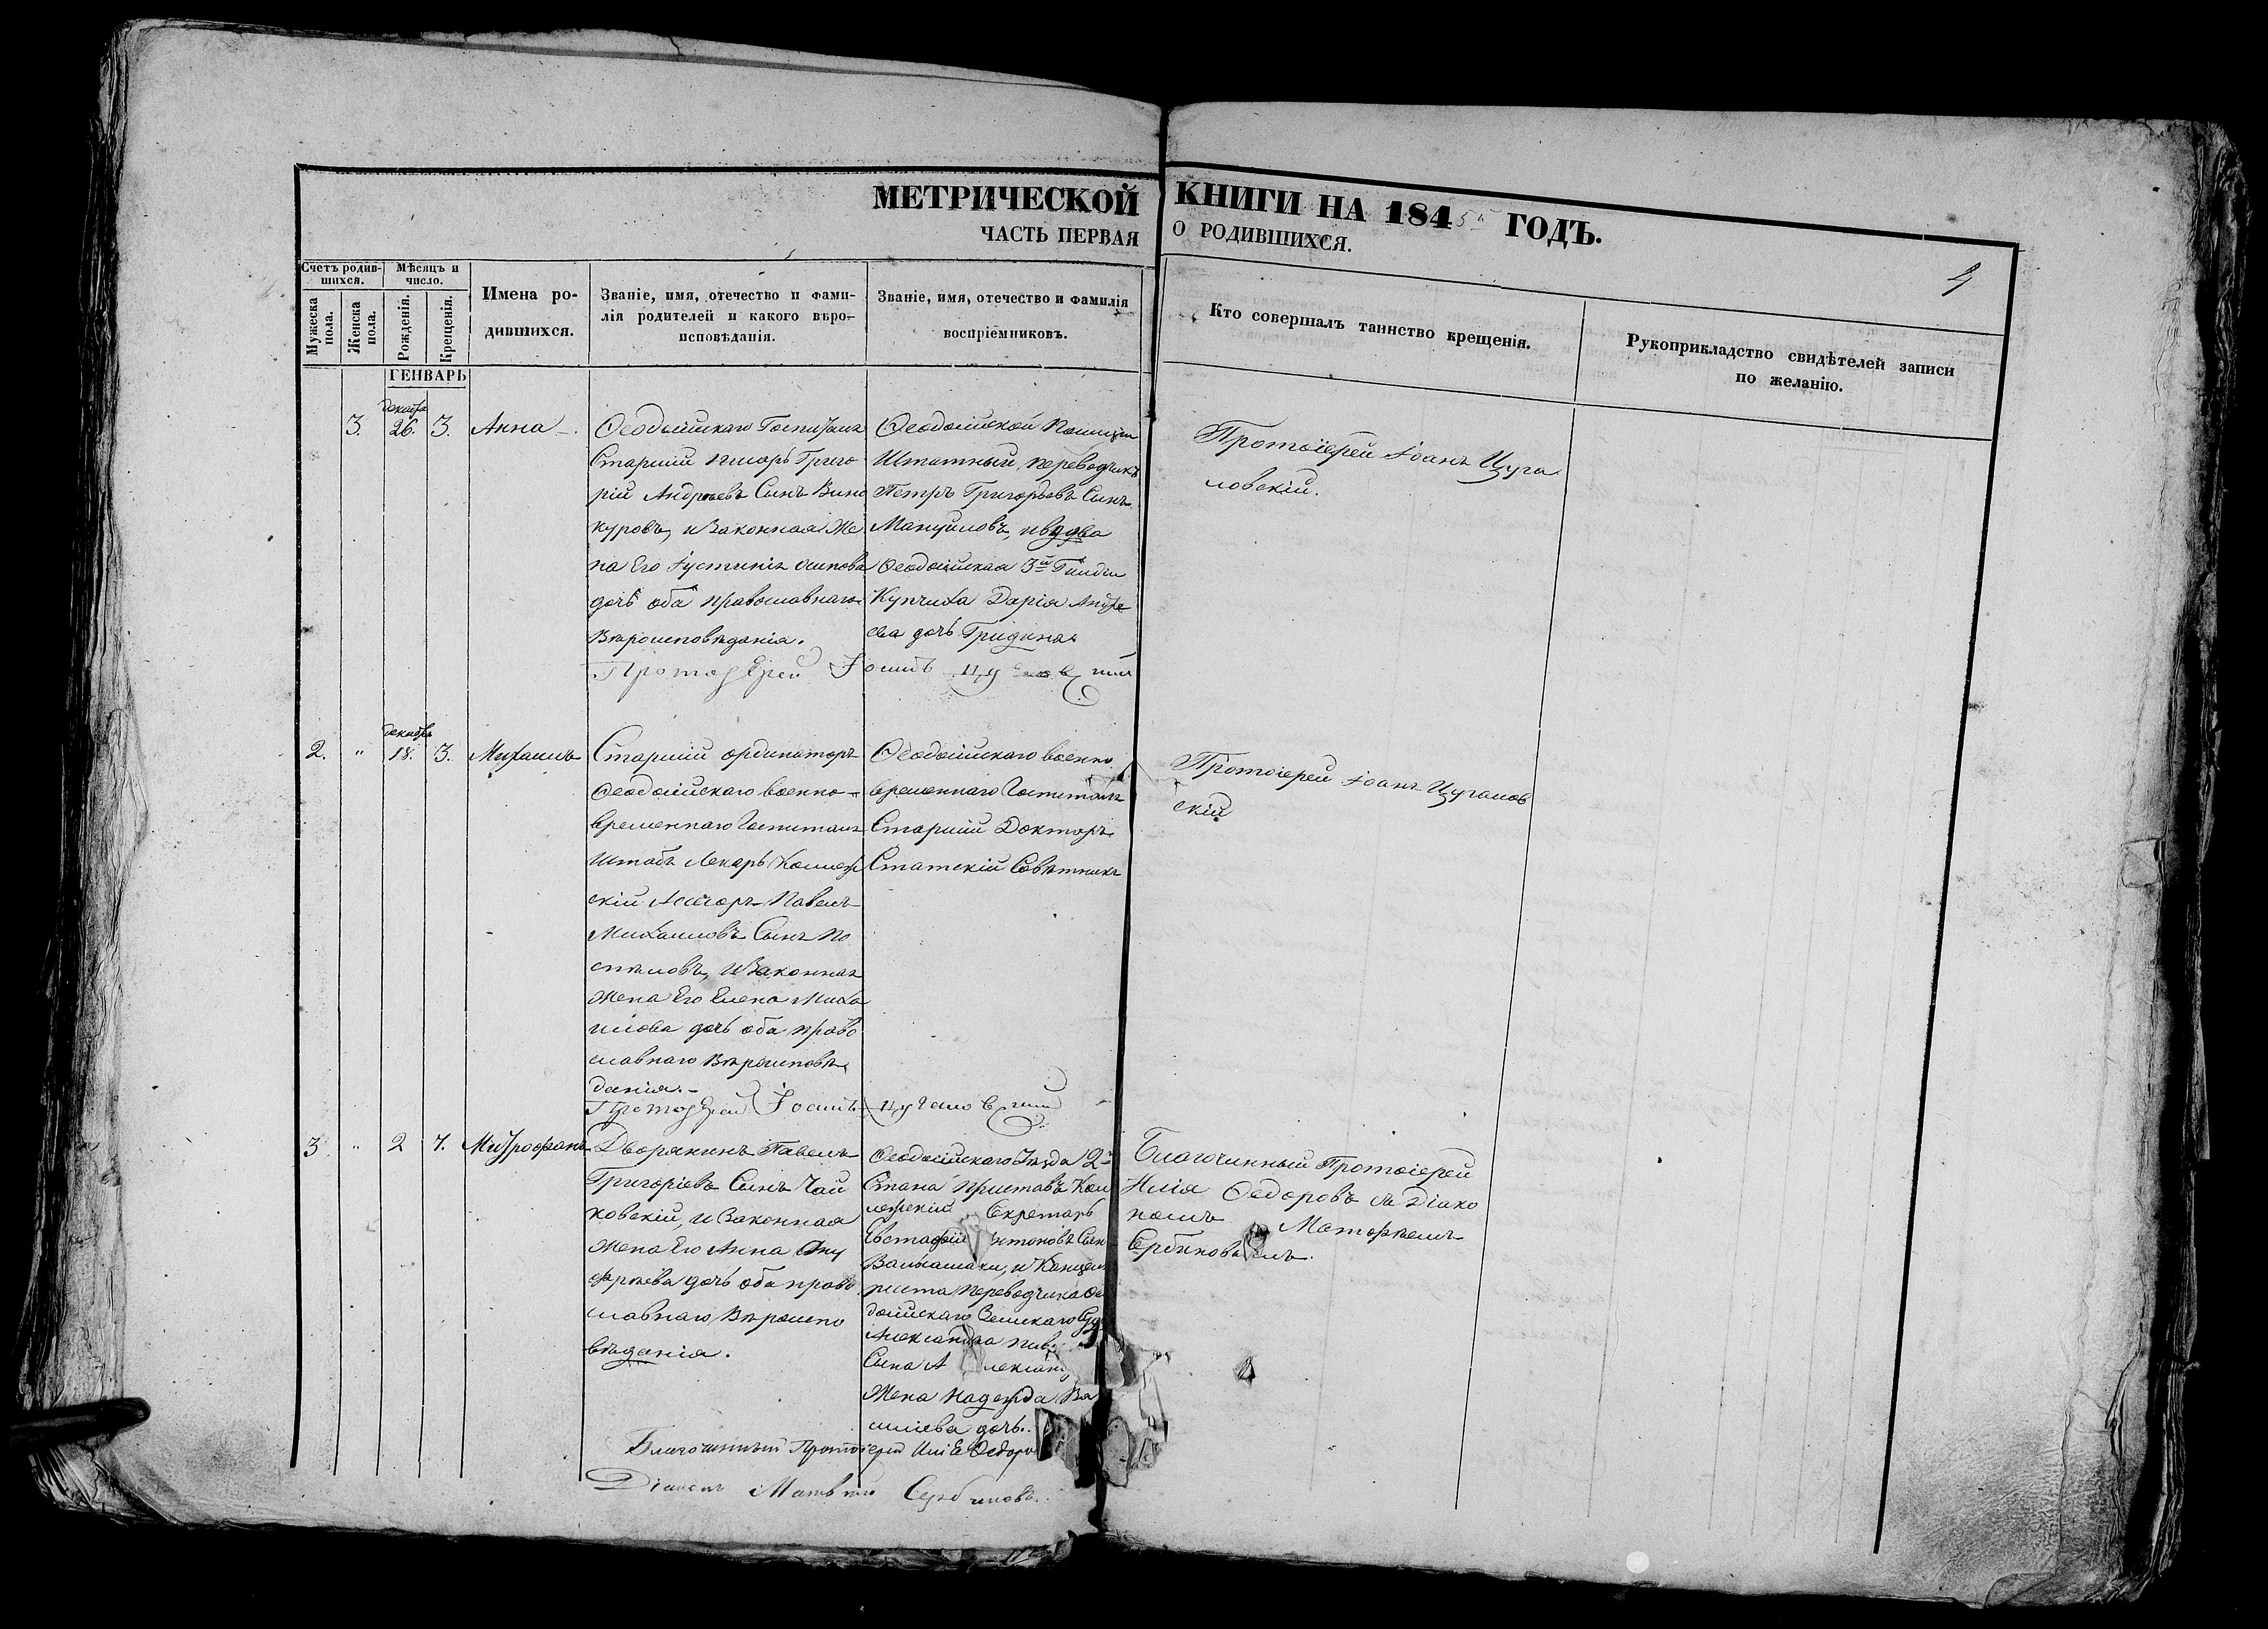 МЕТРИЧЕСКОЙ КНИГИ НА 1845й ГОДЪ.
ЧАСТЬ ПЕРВАЯ О РОДИВШИХСЯ.
4
Счетъ родив-
шихся.
Мѣсяцъ и
число.
Мужеска
пола.
Женска
пола.
Рожденія.
Крещенія.
Имена ро-
дившихся.
Званіе, имя, отечество и фами-
лія родителей и какого вѣро-
исповѣданія.
Званіе, имя, отечество и фамилія
воспріемниковъ.
Кто совершалъ таинство крещенія.
Рукоприкладство свидѣтелей записи
по желанію.
ГЕНВАРЬ
3.
декабря
26.
3.
Анна
Ѳеодосійскаго Госпиталя
Старшій писарь Григо
рій Андреевъ Сынъ Вино
куровъ, и Законная Же
на Его Іустинія Осипова
дочь оба православнаго
Вѣроисповѣданія.
Ѳеодосійской Полиціи
Штатный переводчикъ
Петръ Григорьевъ Сынъ
Мануйловъ, и вдова
Ѳеодосійская 3й Гильдіи
Купчиха Дарія Андре
ева дочь Гридина
Протоіерей Іоанъ Цуга
ловскій.
Протоіерей
2.
"
декабря
18.
3.
Михаилъ
Старшій ординаторъ
Ѳеодосійскаго военно-
временнаго Госпиталя
Штабъ Лекарь Коллеж
скій Асесоръ Павелъ
Михаиловъ Сынъ По
спѣловъ, и Законная
Жена Его Елена Миха
илова дочь оба право
славнаго Вѣроисповѣ
данія.-
Ѳеодосійскаго военно
временнаго Госпиталя
Старшій Докторъ
Статскій Совѣтникъ
Протоіерей Іоанъ Цугалов
скій
Протоіерей
3
"
2
7.
Митрофанъ
Дворянинъ Павелъ
Григоріевъ Сынъ Чай
ковскій, и Законная
Жена Его Анна Ону
фріева дочь оба право
славнаго Вѣроиспо
вѣданія.
Ѳеодосійскаго Уѣзда 2го
Стана Приставъ Кол
лежскій Секретарь
Евстафій Сынъ
и
переводчика Ѳео
досійскаго Земскаго Суда
Александра
Сына
Жена Надежда Ва
силіева дочь.
Благочинный Протоіерей
Илія Ѳедоровъ съ Діако
номъ Матфѣемъ
Сербиновымъ.
Благочинный Протоіерей Илія Ѳедоро
Діаконъ Матвѣй Сербиновъ.